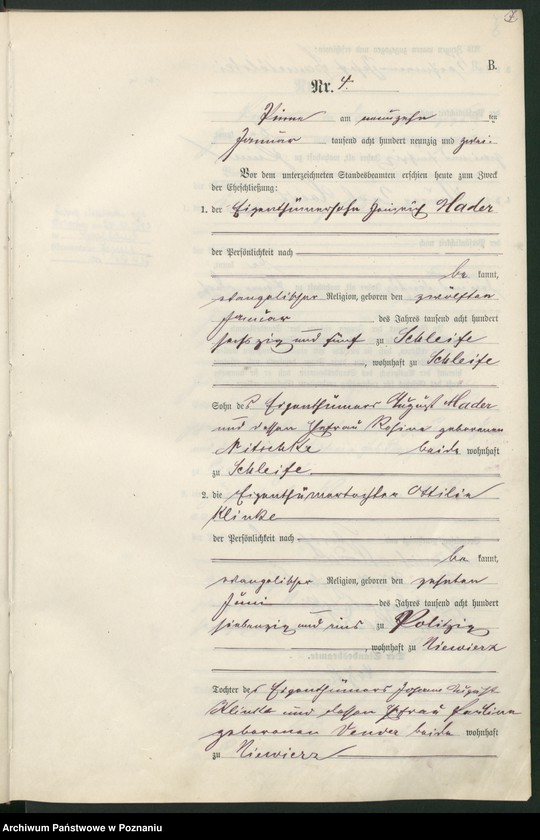 B.
Nr. 4.
Pinne am neunzehn ten
Januar tausend acht hundert neunzig und zwei.
Vor dem unterzeichneten Standesbeamten erschien heute zum Zweck
der Eheschließung:
1. der Eigenthümersohn Heinrich Hader
der Persönlichkeit nach
be kannt,
evangelischer Religion, geboren den zwölften
Januar des Jahres tausend acht hundert
sechszig und fünf zu Schleife
, wohnhaft zu Schleife
Sohn des Eigenthümers August Hader
und dessen Ehefrau Rosine geborenen
Nitschke beide wohnhaft
zu Schleife
2. die Eigenthümertochter Ottilie
Klinke
der Persönlichkeit nach
be kannt,
evangelischer Religion, geboren den zehnten
Juni des Jahres tausend acht hundert
siebenzig und eins zu Politzig
, wohnhaft zu Niewierz
Tochter des Eigenthümers Johann August
Klinke und dessen Ehefrau Pauline
geborenen beide wohnhaft
zu Niewierz
Archiwum Państwowe w Poznaniu